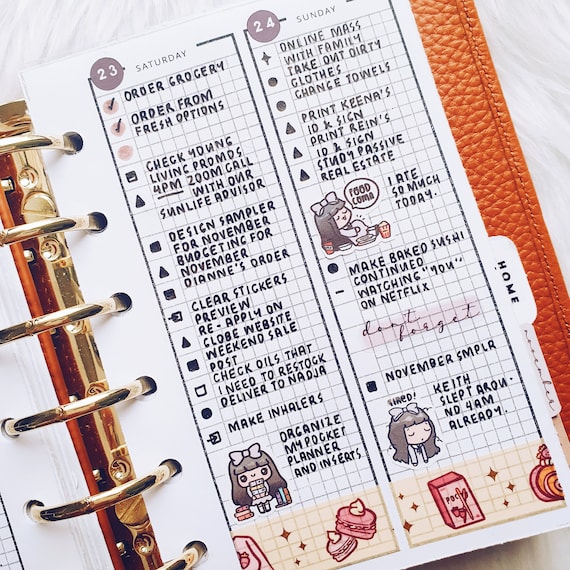 23 SATURDAY
ORDER GROCERY
ORDER FROM
FRESH OPTIONS
CHECK YOUNG
LIVING PROMOS
4PM ZOOM CALL
WITH OUR
SUNLIFE ADVISOR
DESIGN SAMPLER
FOR NOVEMBER
BUDGETING FOR
NOVEMBER
DIANNE'S ORDER
CLEAR STICKERS
PREVIEW
RE-APPLY ON
GLOBE WEBSITE
WEEKEND SALE
POST
CHECK OILS THAT
I NEED TO RESTOCK
DELIVER TO NADJA
MAKE INHALERS
ORGANIZE
MY POCKET
PLANNER
AND INSERTS.
24 SUNDAY
ONLINE MASS
WITH FAMILY
TAKE OUT DIRTY
CLOTHES
CHANGE TOWELS
PRINT KEENA'S
ID & SIGN
PRINT REIN'S
ID & SIGN
STUDY PASSIVE
REAL ESTATE
FOOD
COMA
I ATE
SO MUCH
TODAY.
MAKE BAKED SUSHI
CONTINUED
WATCHING "YOU"
ON NETFLIX
don't forget
NOVEMBER SMPLR
TIRED!
KEITH
SLEPT AROU-
ND 4AM
ALREADY.
HOME